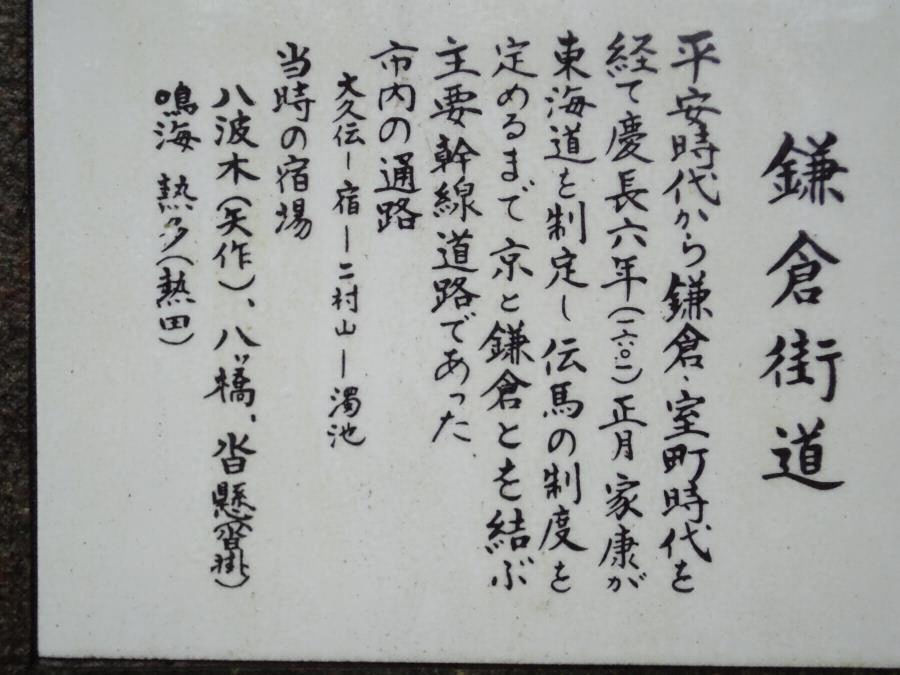 鎌倉街道
平安時代から鎌倉、室町時代を
経て慶長六年(一六〇一)正月家康が
東海道を制定し伝馬の制度を
定めるまで京と鎌倉とを結ぶ
主要幹線道路であった
市内の通路
大久伝ー宿ー二村山ー濁池
当時の宿場
八波木(矢作)、八ッ橋、沓懸(沓掛)
鳴海 熱多(熱田)